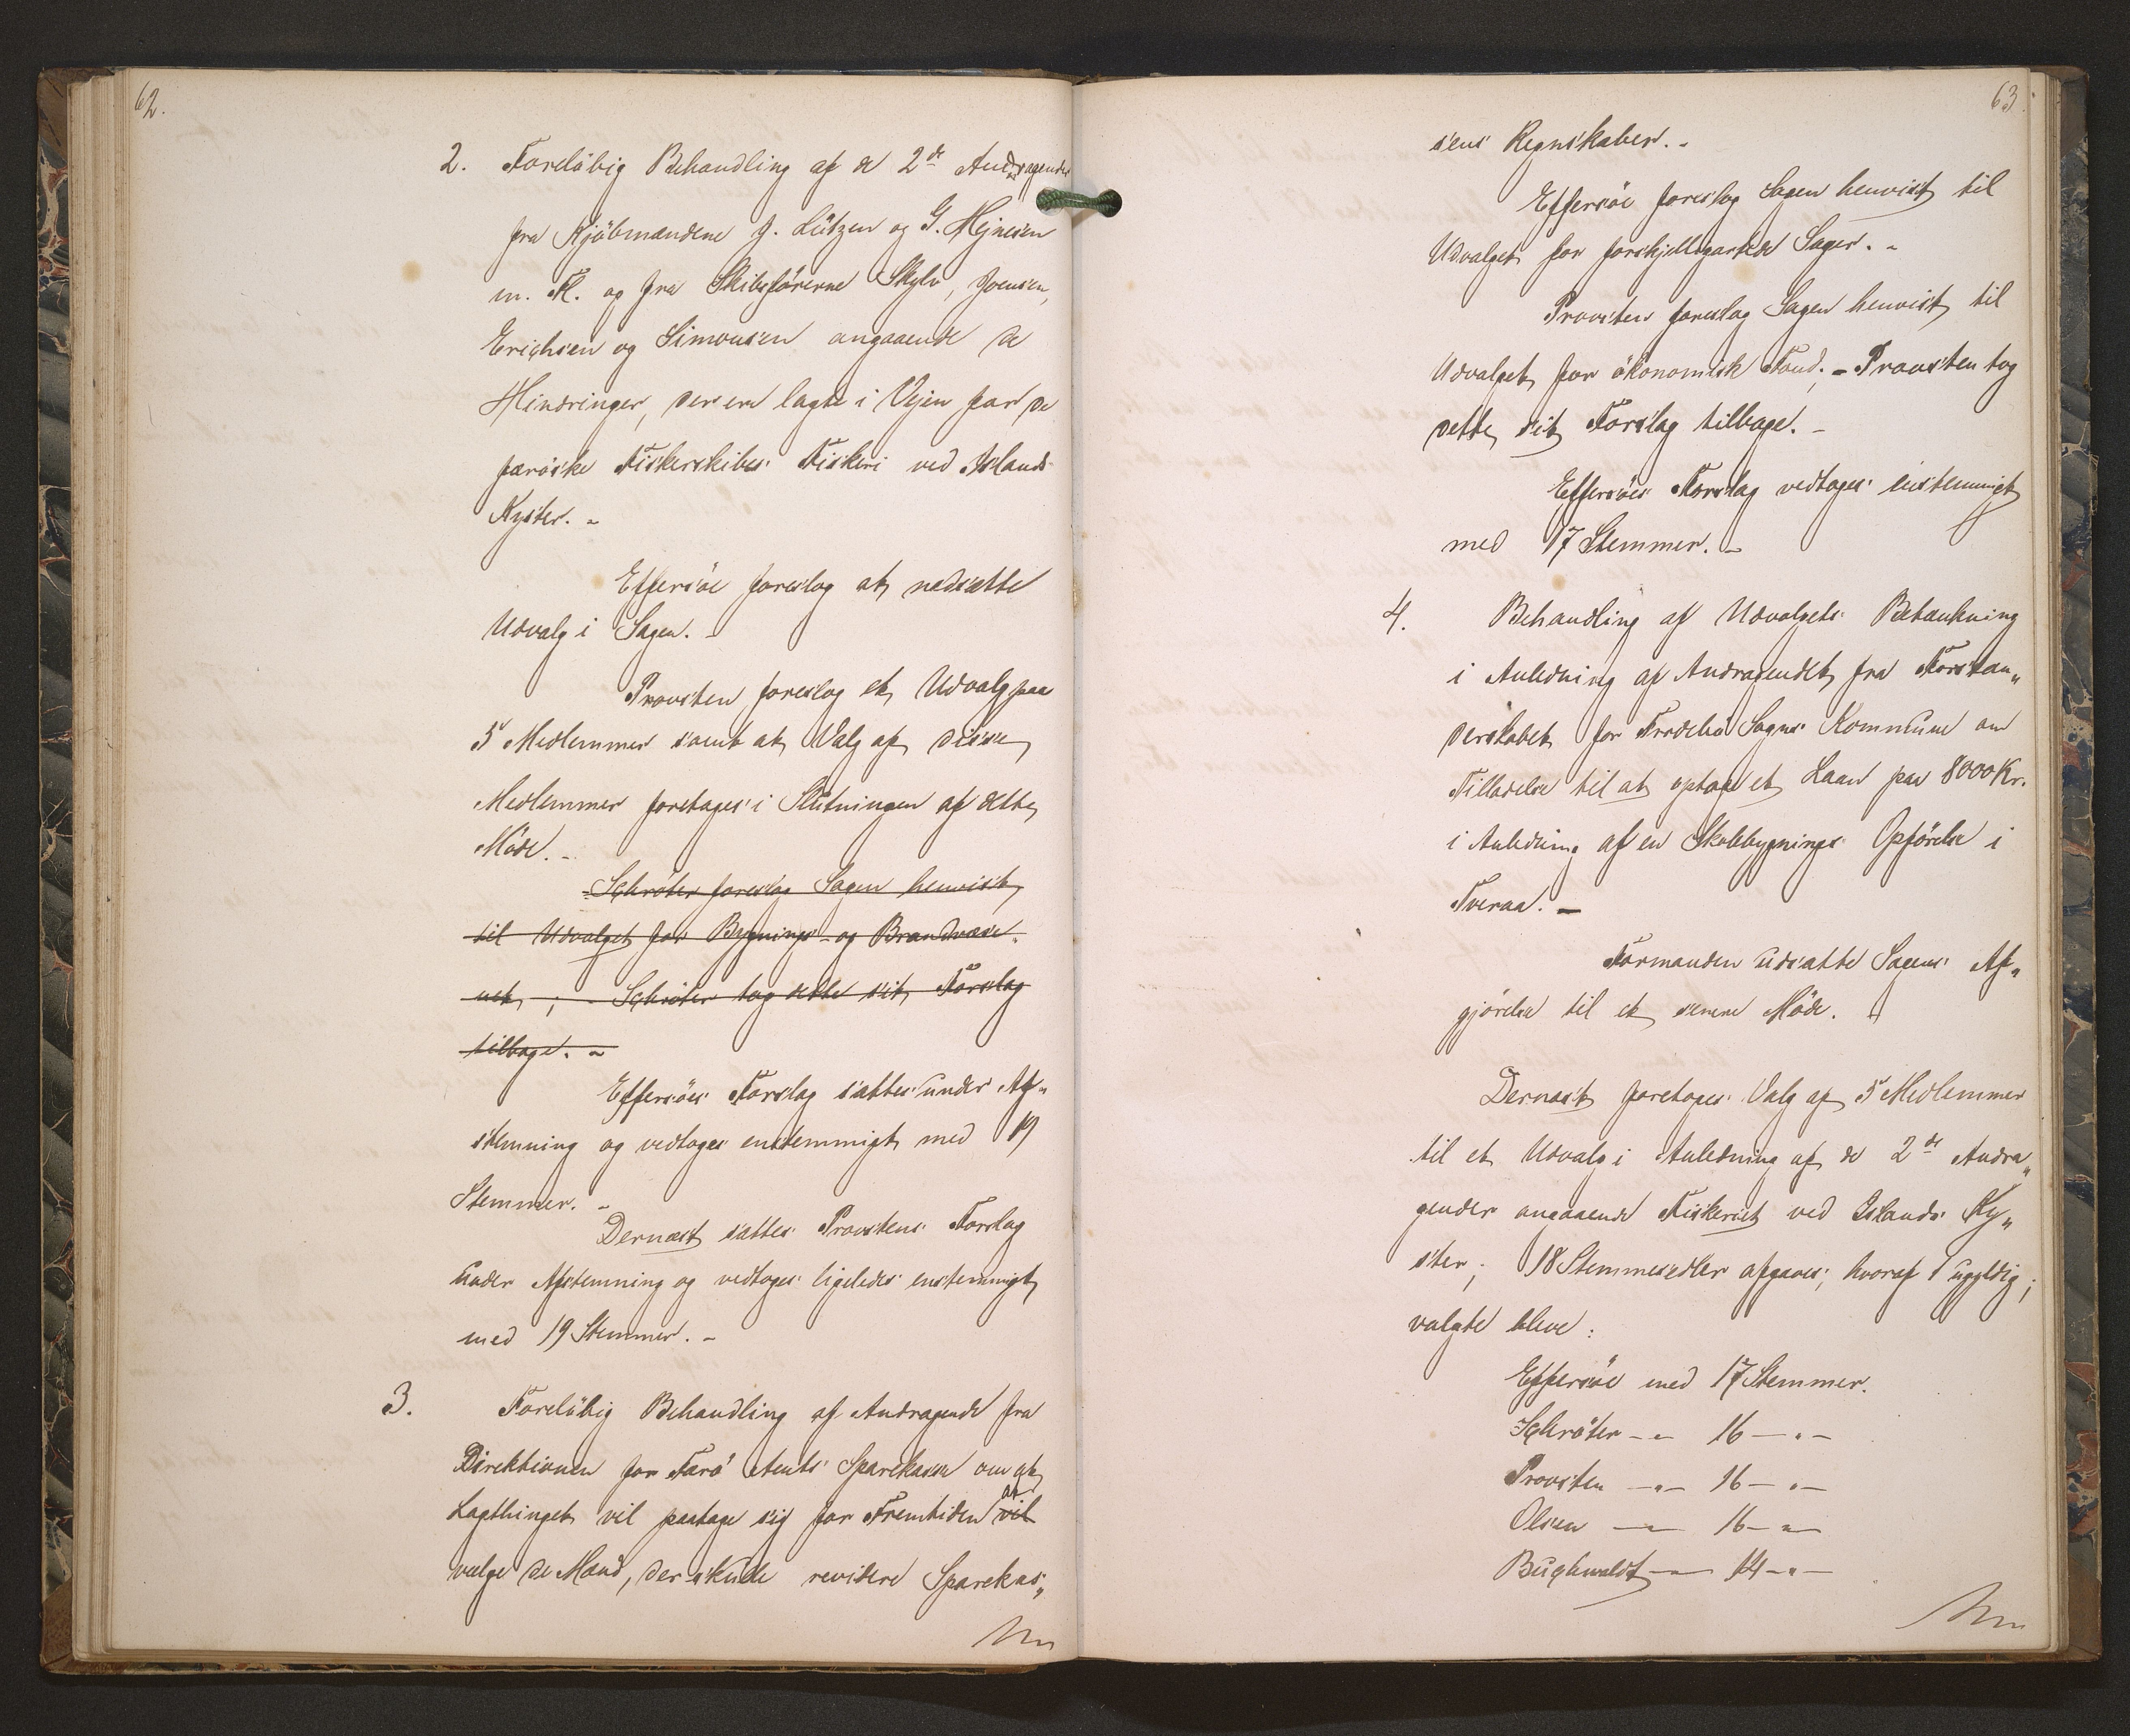 62.
2. Foreløbig Behandling af de 2de Andragender
fra Kjøbmændene J. Lützen og G. Hejnesen
m. Fl. og fra Skibsførerne Skylv, Joensen,
Erichsen og Simonsen angaaende de
Hindringer, der ere lagte i Vejen for de
færøske Fiskerskibes Fiskeri ved Islands
Kyster. -
Effersøe foreslog at nedsætte
Udvalg i Sagen. -
Provsten foreslog et Udvalg paa
5 Medlemmer samt at Valg af disse
Medlemmer foretages i Slutningen af dette
Møde. -
Schrøter foreslog Sagen henvist
til Udvalget for Bygnings- og Brandvæse-
net, ; - Schrøter tog dette sit Forslag
tilbage. -
Effersøes Forslag sattes under Af-
stemning og vedtoges enstemmigt med 19
Stemmer. -
Dernæst sattes Provstens Forslag
under Afstemning og vedtoges ligeledes enstemmigt
med 19 Stemmer. -
3. Foreløbig Behandling af Andragende fra
Direktionen for Færø Amts Sparekasse om at
Lagthinget vil paatage sig for Fremtiden vil at
vælge de Mænd, der skulde revidere Sparekas„
63.
sens Regnskaber. -
Effersøe foreslog Sagen henvist til
Udvalget for forskjelligartede Sager. -
Provsten foreslog Sagen henvist til
Udvalget for økonomisk Fond; - Provsten tog
dette sit Forslag tilbage. -
Effersøes Forslag vedtoges enstemmigt
med 17 Stemmer. -
4. Behandling af Udvalgets Betænkning
i Anledning af Andragendet fra Forstan„
derskabet for Frodebø Sogns Kommune om
Tilladelse til at optage et Laan paa 8000 Kr.
i Anledning af en Skolebygnings Opførelse i
Tveraa. -
Formanden udsatte Sagens Af„
gjørelse til et senere Møde.
Dernæst foretoges Valg af 5 Medlemmer
til et Udvalg i Anledning af de 2de Andra„
gender angaaende Fiskeriet ved Islands Ky„
ster; 18 Stemmesedler afgaves, hvoraf 1 ugyldig;
valgte bleve:
Effersøe med 17 Stemmer.
Schrøter -„- 16 -„-
Provsten -„- 16 -„-
Olsen -„- 16 -„-
Buchwaldt -„- 14 -„-